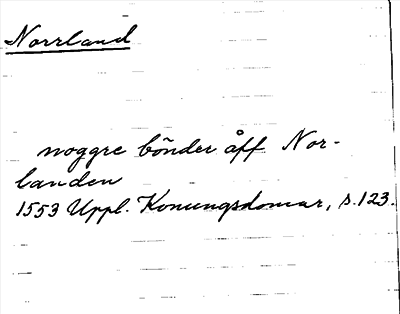 Norrland
noggre bönder åff Nor-
landen
1553 Uppl. Konungsdomar, s. 123.